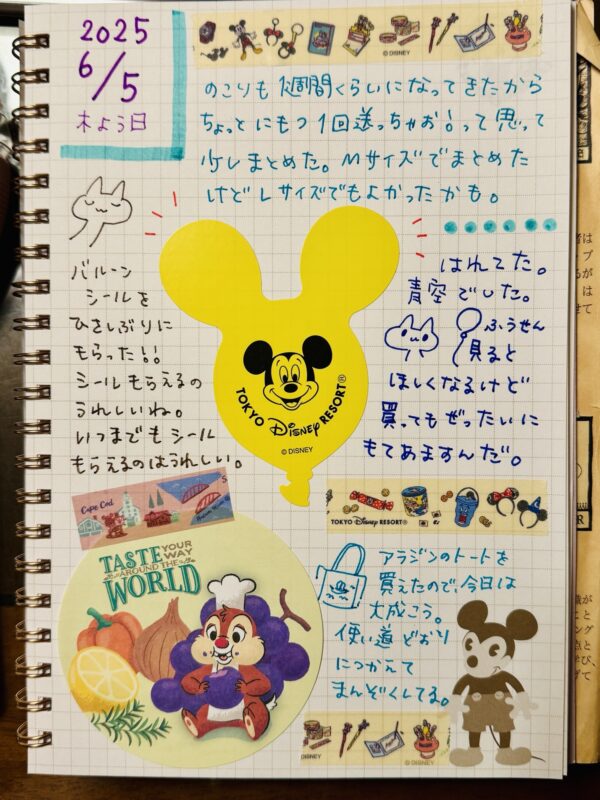 2025
6/5
木よう日
© DISNEY
のこりも1週間くらいになってきたから
ちょっとにもつ1回送っちゃお!って思って
少しまとめた。Mサイズでまとめた
けどLサイズでもよかったかも。
バルーン
シールを
ひさしぶりに
もらった!!
シールもらえるの
うれしいね。
いつまでもシール
もらえるのはうれしい。
TOKYO Disney RESORT®
© DISNEY
はれてた。
青空でした。
ふうせん
見ると
ほしくなるけど
買ってもぜったいに
もてあますんだ。
TOKYO Disney RESORT®
Cape Cod
5
TASTE YOUR WAY
AROUND THE
WORLD
アラジンのトートを
買えたので、今日は
大成こう。
使い道どおり
につかえて
まんぞくしてる。
© DISNEY